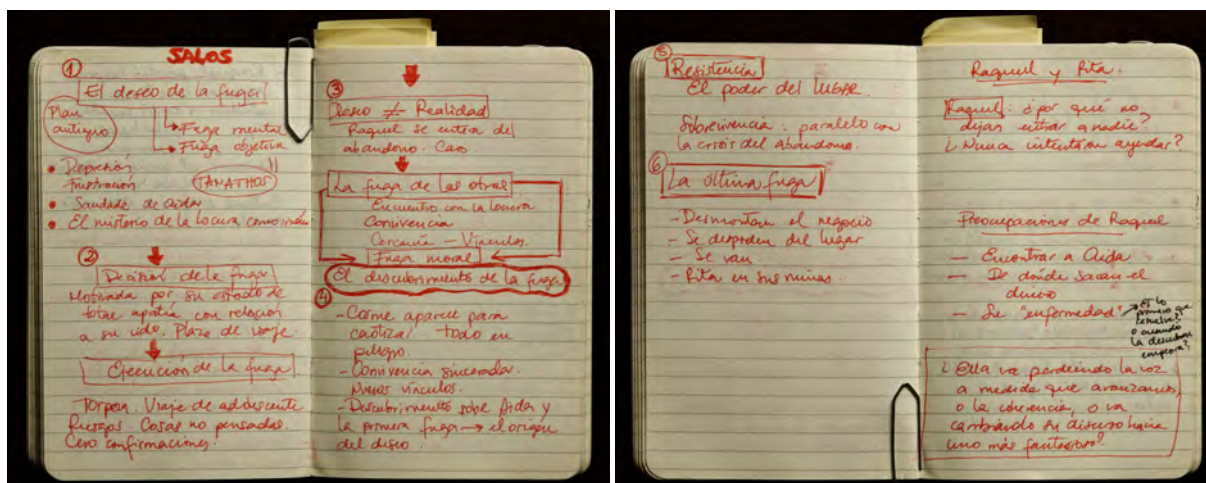 SALOS
①
El deseo de la fuga
Plan
antiguo
Fuga mental
Fuga objetiva
• Depresión
Frustración
TANATHOS
• Saudade de Aida
• El misterio de la locura como
②
Decisión de la fuga
Motivada por su estado de
total apatía con relación
a su vida. Plan de viaje.
Ejecución de la fuga
Torpeza. Viaje de adolescente
Riesgos. Cosas no pensadas.
Cero confirmaciones
③
Deseo ≠ Realidad
Raquel se entera del
abandono. Caos
La fuga de las otras
Encuentro con la locura
Convivencia
Cercanía — Vínculos.
Fuga moral
El descubrimiento de la fuga
④
- Corme aparece para
caotizar todo en
peligro.
- Convivencia sincerada.
Nuevos vínculos.
- Descubrimiento sobre Aida y
la primera fuga → el origen
del deseo.
⑤
Resistencia
El poder del LUGAR.
Sobrevivencia: paralelo con
la crisis del abandono.
⑥
La última fuga
- Desmontan el negocio
- Se despiden del lugar
- Se van
- Rita en sus ruinas.
Raquel y Rita.
Raquel: ¿por qué no
dejan entrar a nadie?
¿Nunca intentaron ayudar?
Preocupaciones de Raquel
— Encontrar a Aida
— De dónde sacan el
dinero
— Su "enfermedad" →
es lo
primero que
resuelve?
o cuando
la descubren
empeora?
¿Ella va perdiendo la voz
a medida que avanzamos,
o la coherencia, o va
cambiando su discurso hacia
uno más fantasioso?